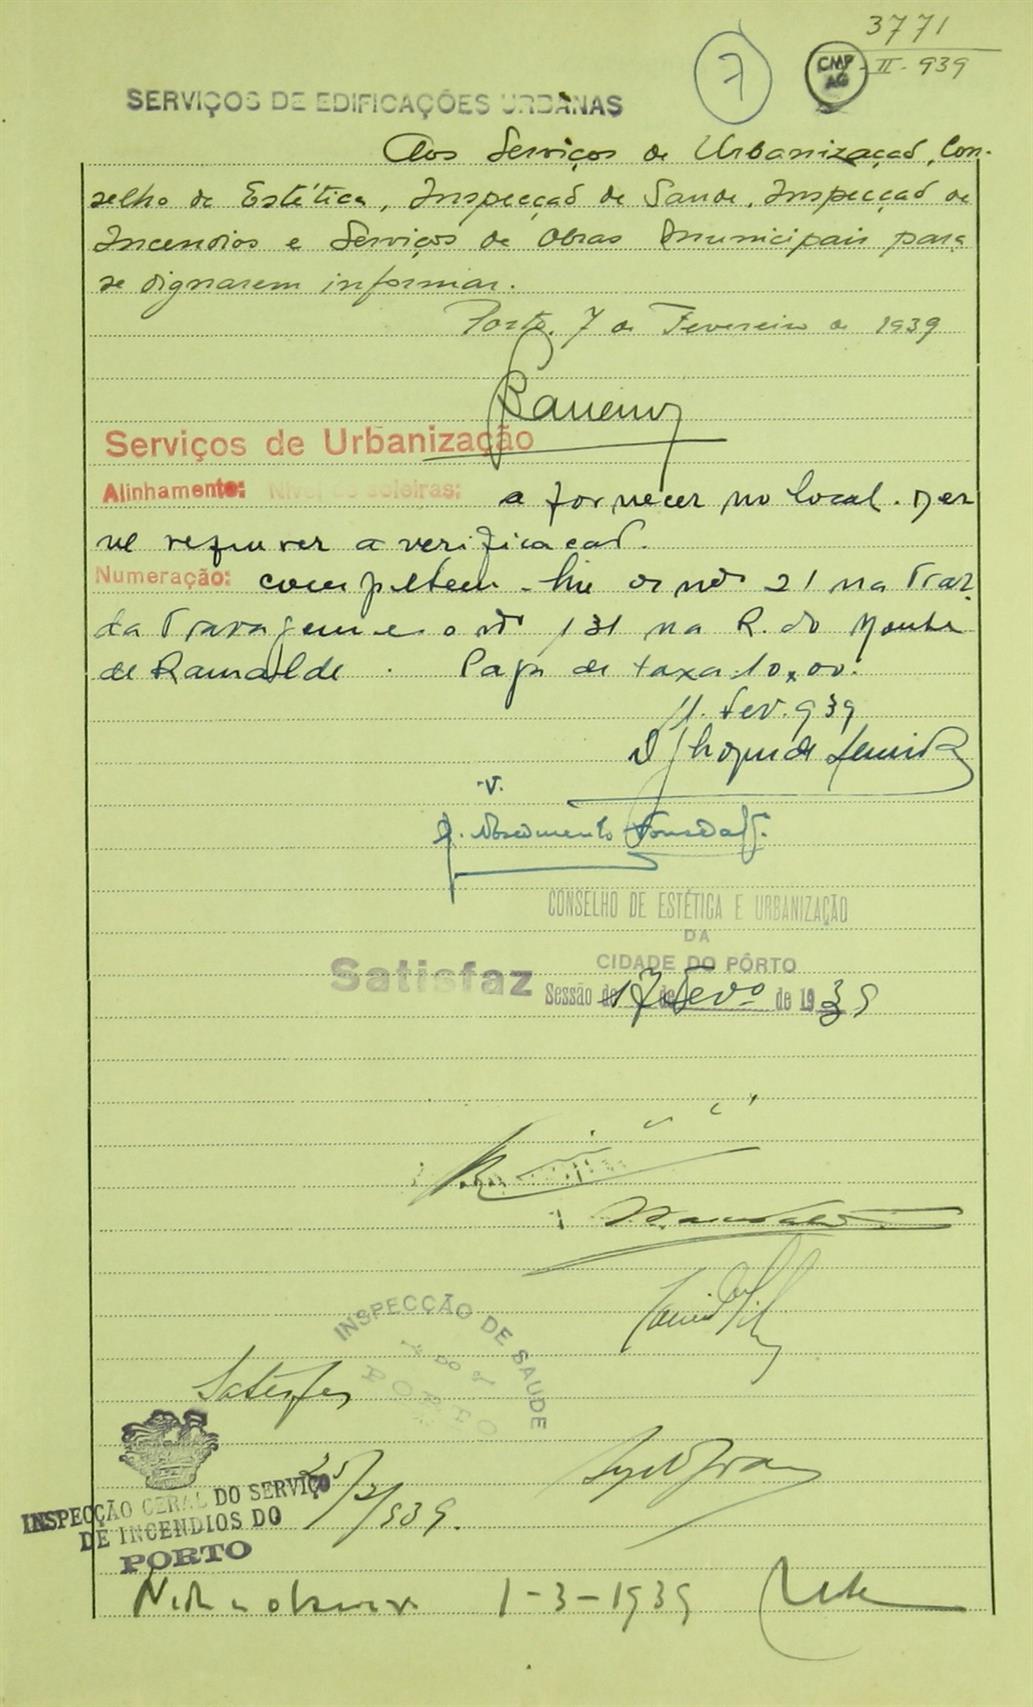 3771
II-939
7
CMP
AG
SERVIÇOS DE EDIFICAÇÕES URBANAS
Aos Serviços de Urbanização, Con-
selho de Estética, Inspecção de Saude, Inspecção de
Incendios e Serviços de Obras Municipais para
se dignarem informar.
Porto, 7 de Fevereiro de 1939
Serviços de Urbanização
Alinhamento: Nivel de soleiras: a fornecer no local. Der
ve requerer a verificação.
Numeração: competem-lhe os nos 21 na Trav.
da Travagem e o no 131 na R. do Monte
de Ramalde. Paga de taxa 10,00.
11. fev. 939
V.
CONSELHO DE ESTÉTICA E URBANIZAÇÃO
DA
CIDADE DO PÔRTO
Satisfaz Sessão de 17 de Fevo de 1939
INSPECÇÃO DE SAUDE
Satisfaz
25/2/939.
INSPECÇÃO GERAL DO SERVIÇO
DE INCENDIOS DO
PORTO
1-3-1939